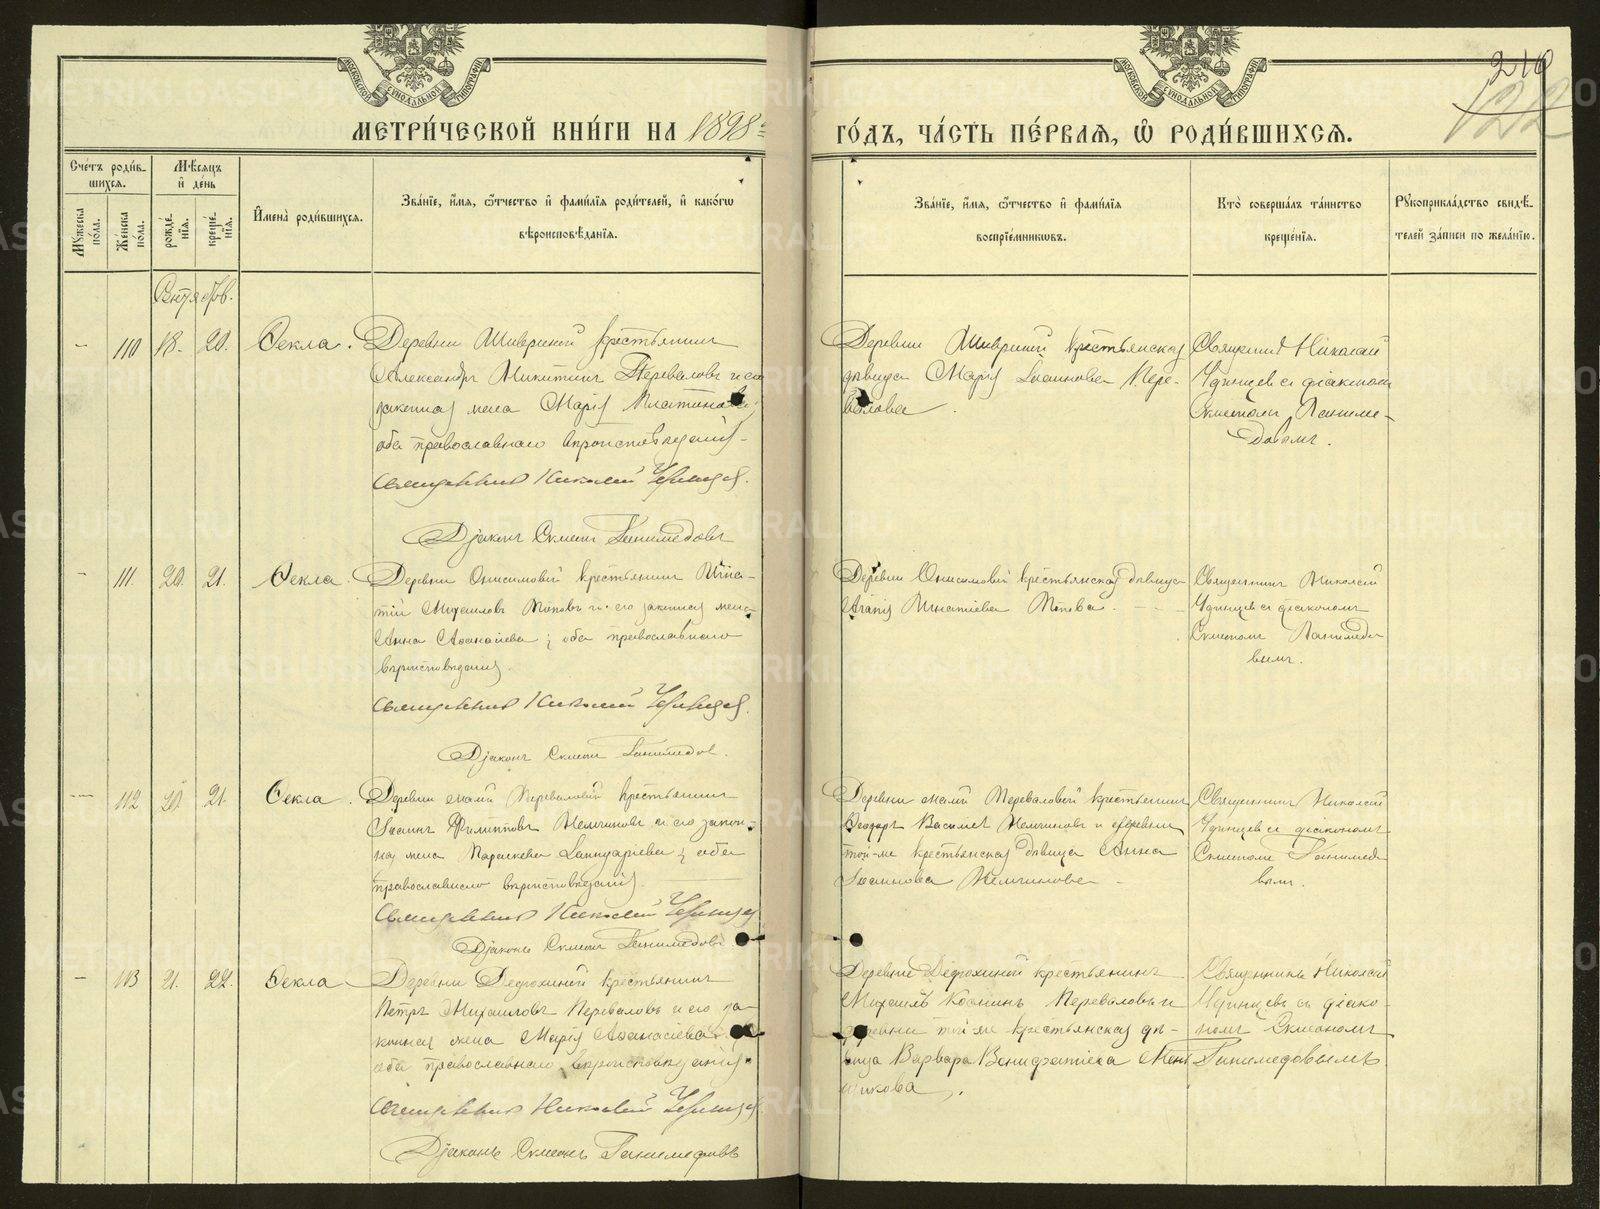 МОСКОВСКОЙ СѴНОДАЛЬНОЙ ТИПОГРАФІИ
МОСКОВСКОЙ СѴНОДАЛЬНОЙ ТИПОГРАФІИ
210
122
МЕТРИ́ЧЕСКОЙ КНИ́ГИ НА 1898
ГО́ДЪ, ЧА́СТЬ ПЕ́РВАѦ, Ѡ҆ РОДИ́ВШИХСѦ.
Сче́тъ роди́в-
шихсѧ.
Мѣ́сѧцъ
и҆ де́нь
Мꙋ́жеска по́ла.
Же́нска по́ла.
рожде́-
нїѧ.
креще́-
нїѧ.
И҆мена̀ роди́вшихсѧ.
Зва́нїе, и҆́мѧ, ѻ҆́тчество и҆ фами́лїѧ роди́телей, и҆ како́гѡ
вѣроисповѣ́данїѧ.
Зва́нїе, и҆́мѧ, ѻ҆́тчество и҆ фами́лїѧ
воспрїе́мникѡвъ.
Кто̀ соверша́лъ та́инство
креще́нїѧ.
Рꙋкоприкла́дство свидѣ́-
телей за́писи по жела́нїю.
Сентябрь.
- 110 18. 20. Ѳекла.
Деревни Шивриной крестьянинъ
Александръ Никитинъ Переваловъ и его
законная жена Марія Платонова,
оба православнаго вѣроисповѣданія.
Священникъ Николай Удинцевъ.
Діаконъ Симеонъ Ганимедовъ
Деревни Шивриной крестьянская
дѣвица Марія Іоаннова Пере-
валова.
Священникъ Николай
Удинцевъ съ діакономъ
Симеономъ Ганиме-
довымъ.
- 111. 20. 21. Ѳекла.
Деревни Онисимовой крестьянинъ Игна-
тій Михаиловъ Поповъ и его законная жена
Анна Аѳанасіева; оба православнаго
вѣроисповѣданія.
Священникъ Николай Удинцевъ.
Діаконъ Симеонъ Ганимедовъ.
Деревни Онисимовой крестьянская дѣвица
Игнатіева Попова.
Священникъ Николай
Удинцевъ съ діакономъ
Симеономъ Ганимедо
вымъ.
- 112 20. 21. Ѳекла.
Деревни малой Переваловой крестьянинъ
Іоаннъ Филипповъ Жемчиновъ и его закон-
ная жена Параскева Іаннуаріева; оба
православнаго вѣроисповѣданія.
Священникъ Николай Удинцевъ
Діаконъ Симеонъ Ганимедовъ.
Деревни малой Переваловой крестьянинъ
Ѳеодоръ Васильевъ Жемчиновъ и деревни
той-же крестьянская дѣвица Анна
Іоаннова Жемчинова
Священникъ Николай
Удинцевъ съ діакономъ
Симеономъ Ганимедо
вымъ.
- 113 21. 22. Ѳекла
Деревни Дедюхиной крестьянинъ
Петръ Михаиловъ Переваловъ и его за-
конная жена Марія Аѳанасіева;
оба православнаго вѣроисповѣданія.
Священникъ Николай Удинцевъ
Діаконъ Симеонъ Ганимедовъ
Деревни Дедюхиной крестьянинъ
Михаилъ Косминъ Переваловъ и
деревни той же крестьянская дѣ-
вица Варвара Вонифатіева
Священникъ Николай
Удинцевъ съ діако-
номъ Симеономъ
Ганимедовымъ
METRIKI.GASO-URAL.RU